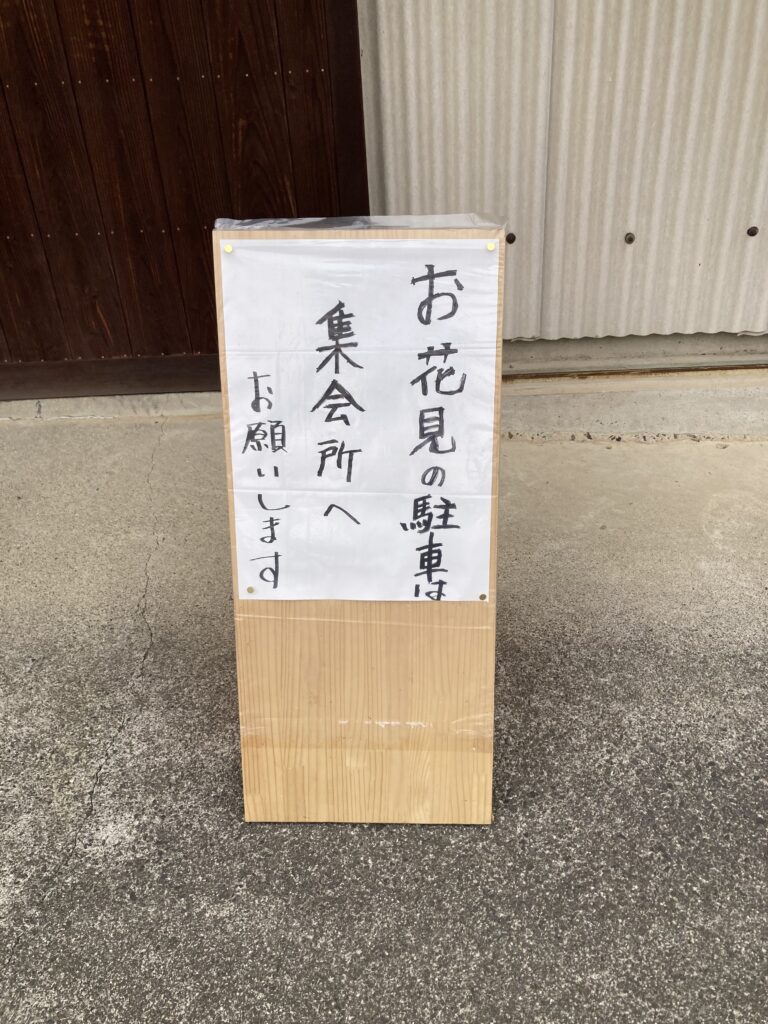 お花見の駐車は
集会所へ
お願いします